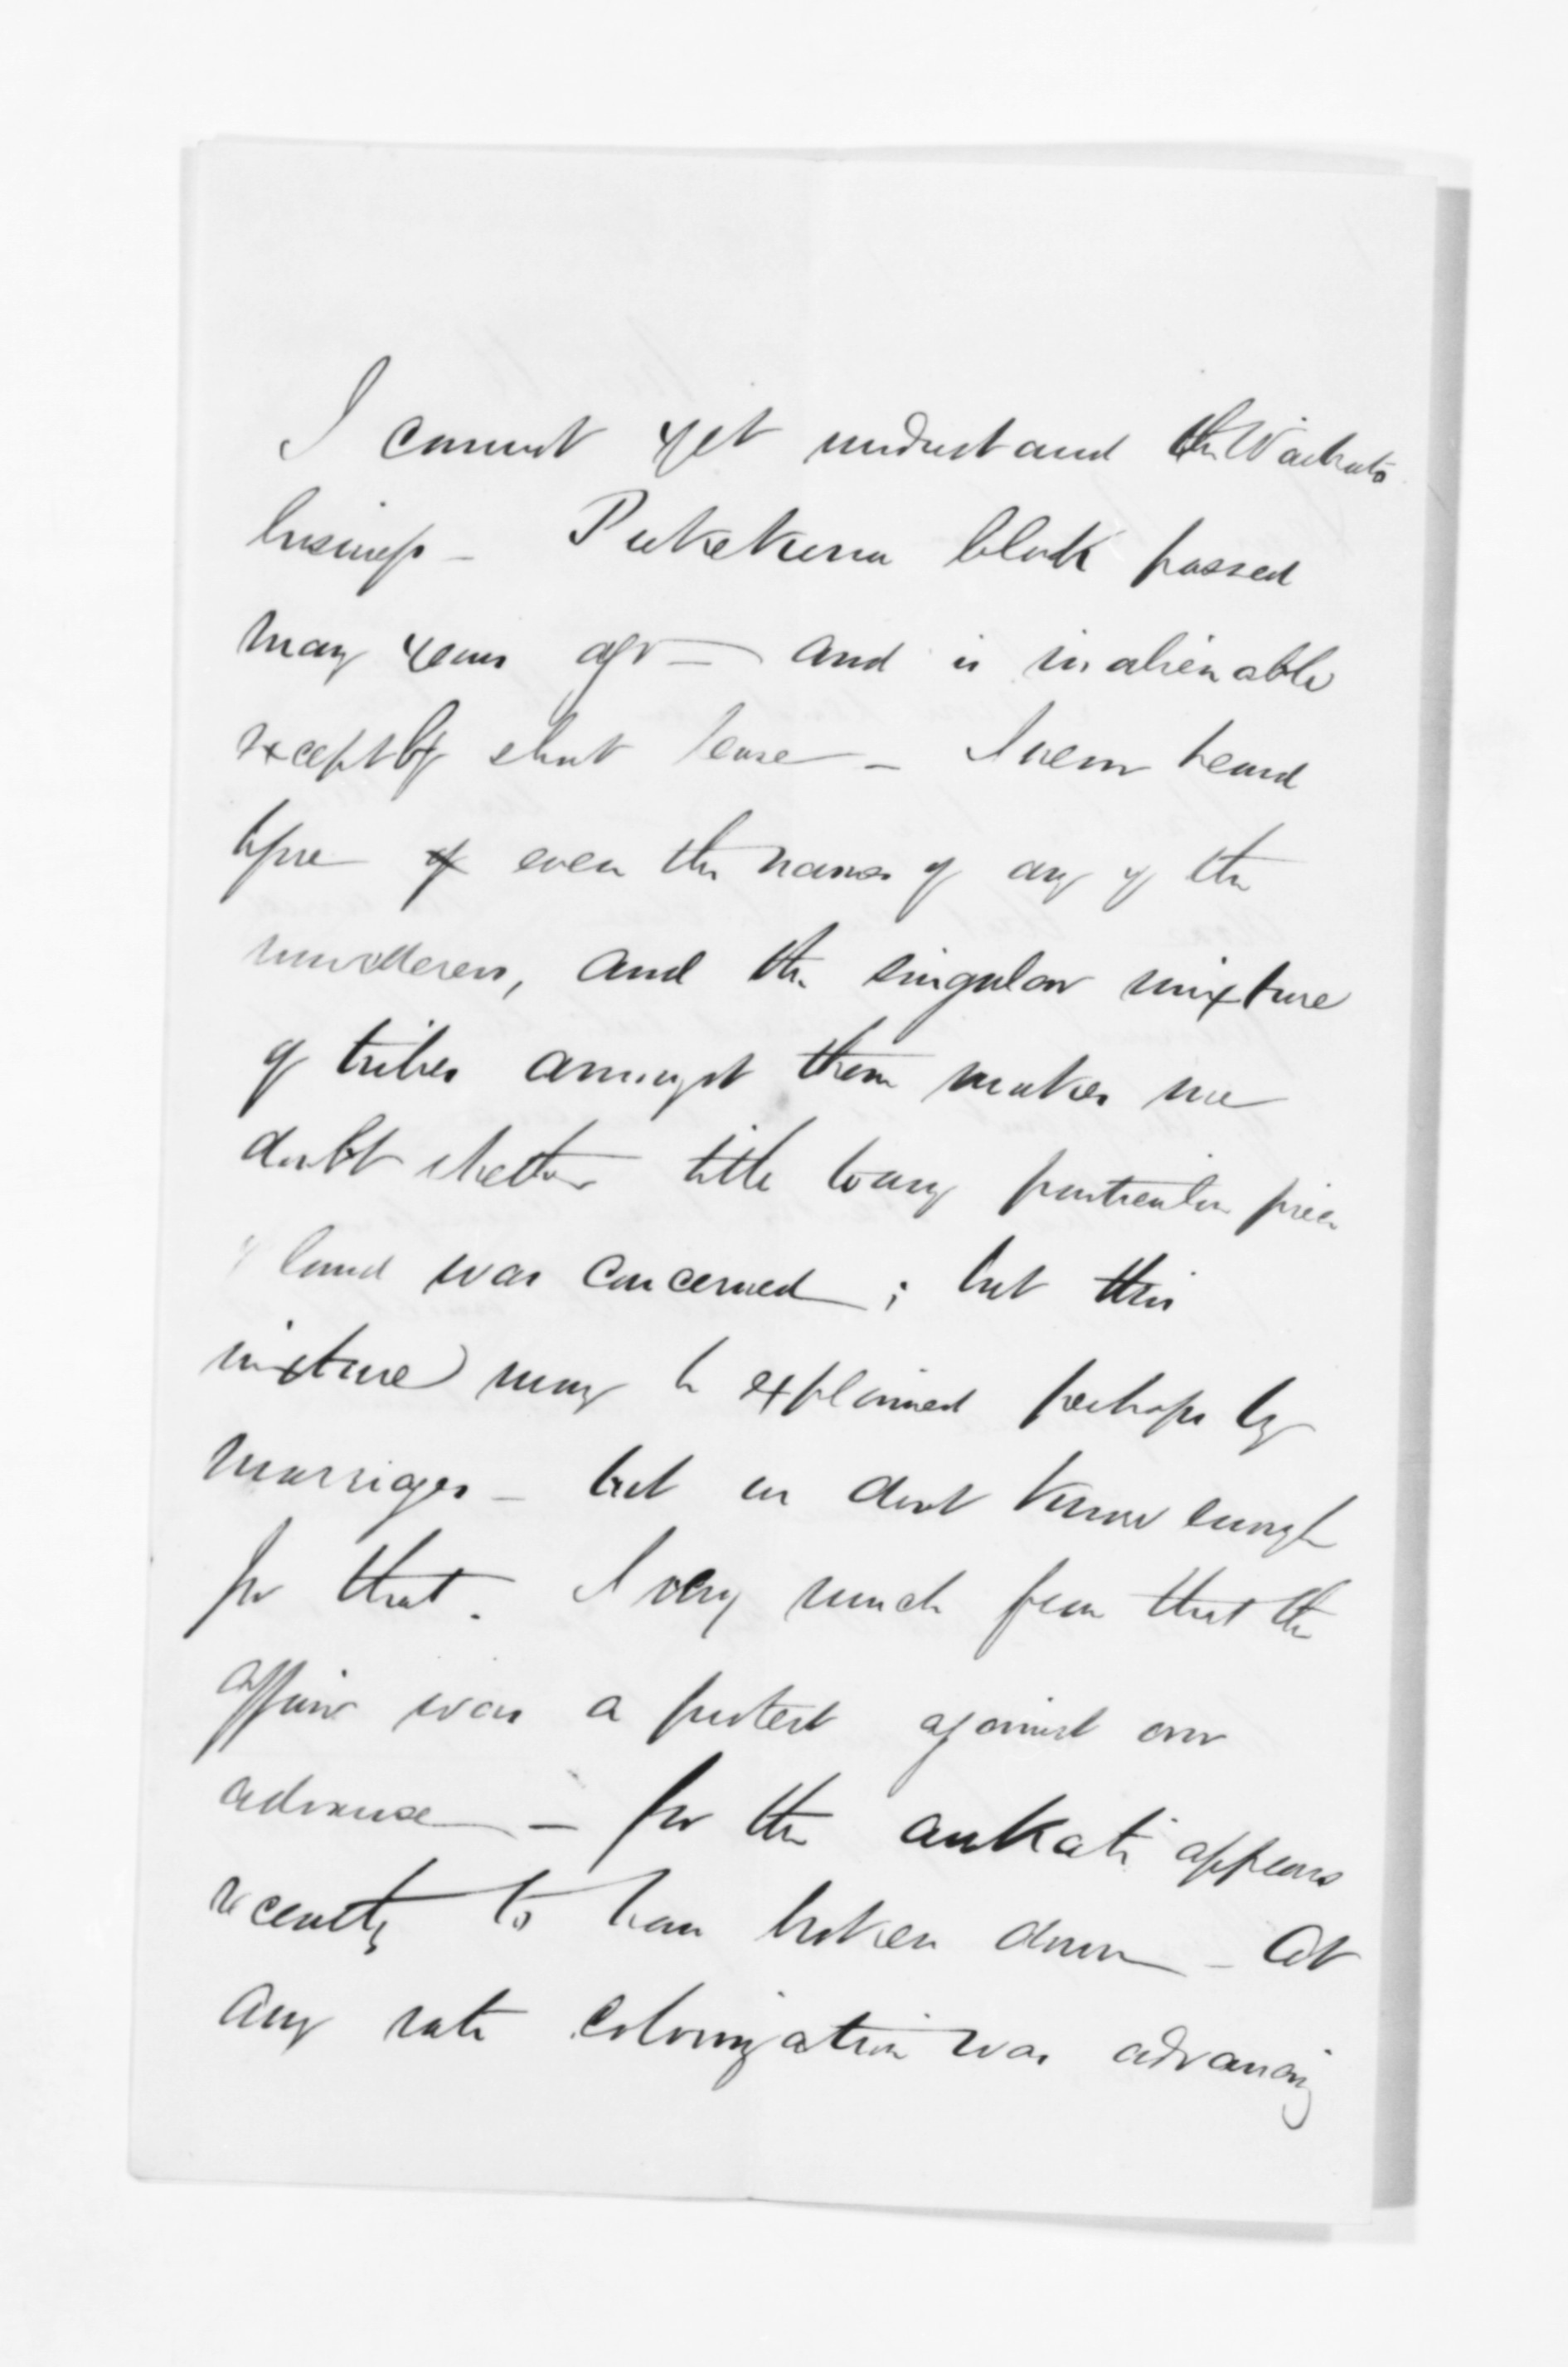 I cannot yet understand the Waikato
business - Pukekura block passed
many years ago - and is inalienable
except by short lease - I never heard
before of even the names of any of the
murderers, and the singular mixture
of tribes amongst them makes me
doubt whether title to any particular piece
of land was concerned ; but this
mixture may be explained perhaps by
marriages - but we dont know enough
for that. I very much fear that the
affair was a protest against our
advance - for the aukati appears
recently to have broken down - At
any rate colonization was advancing